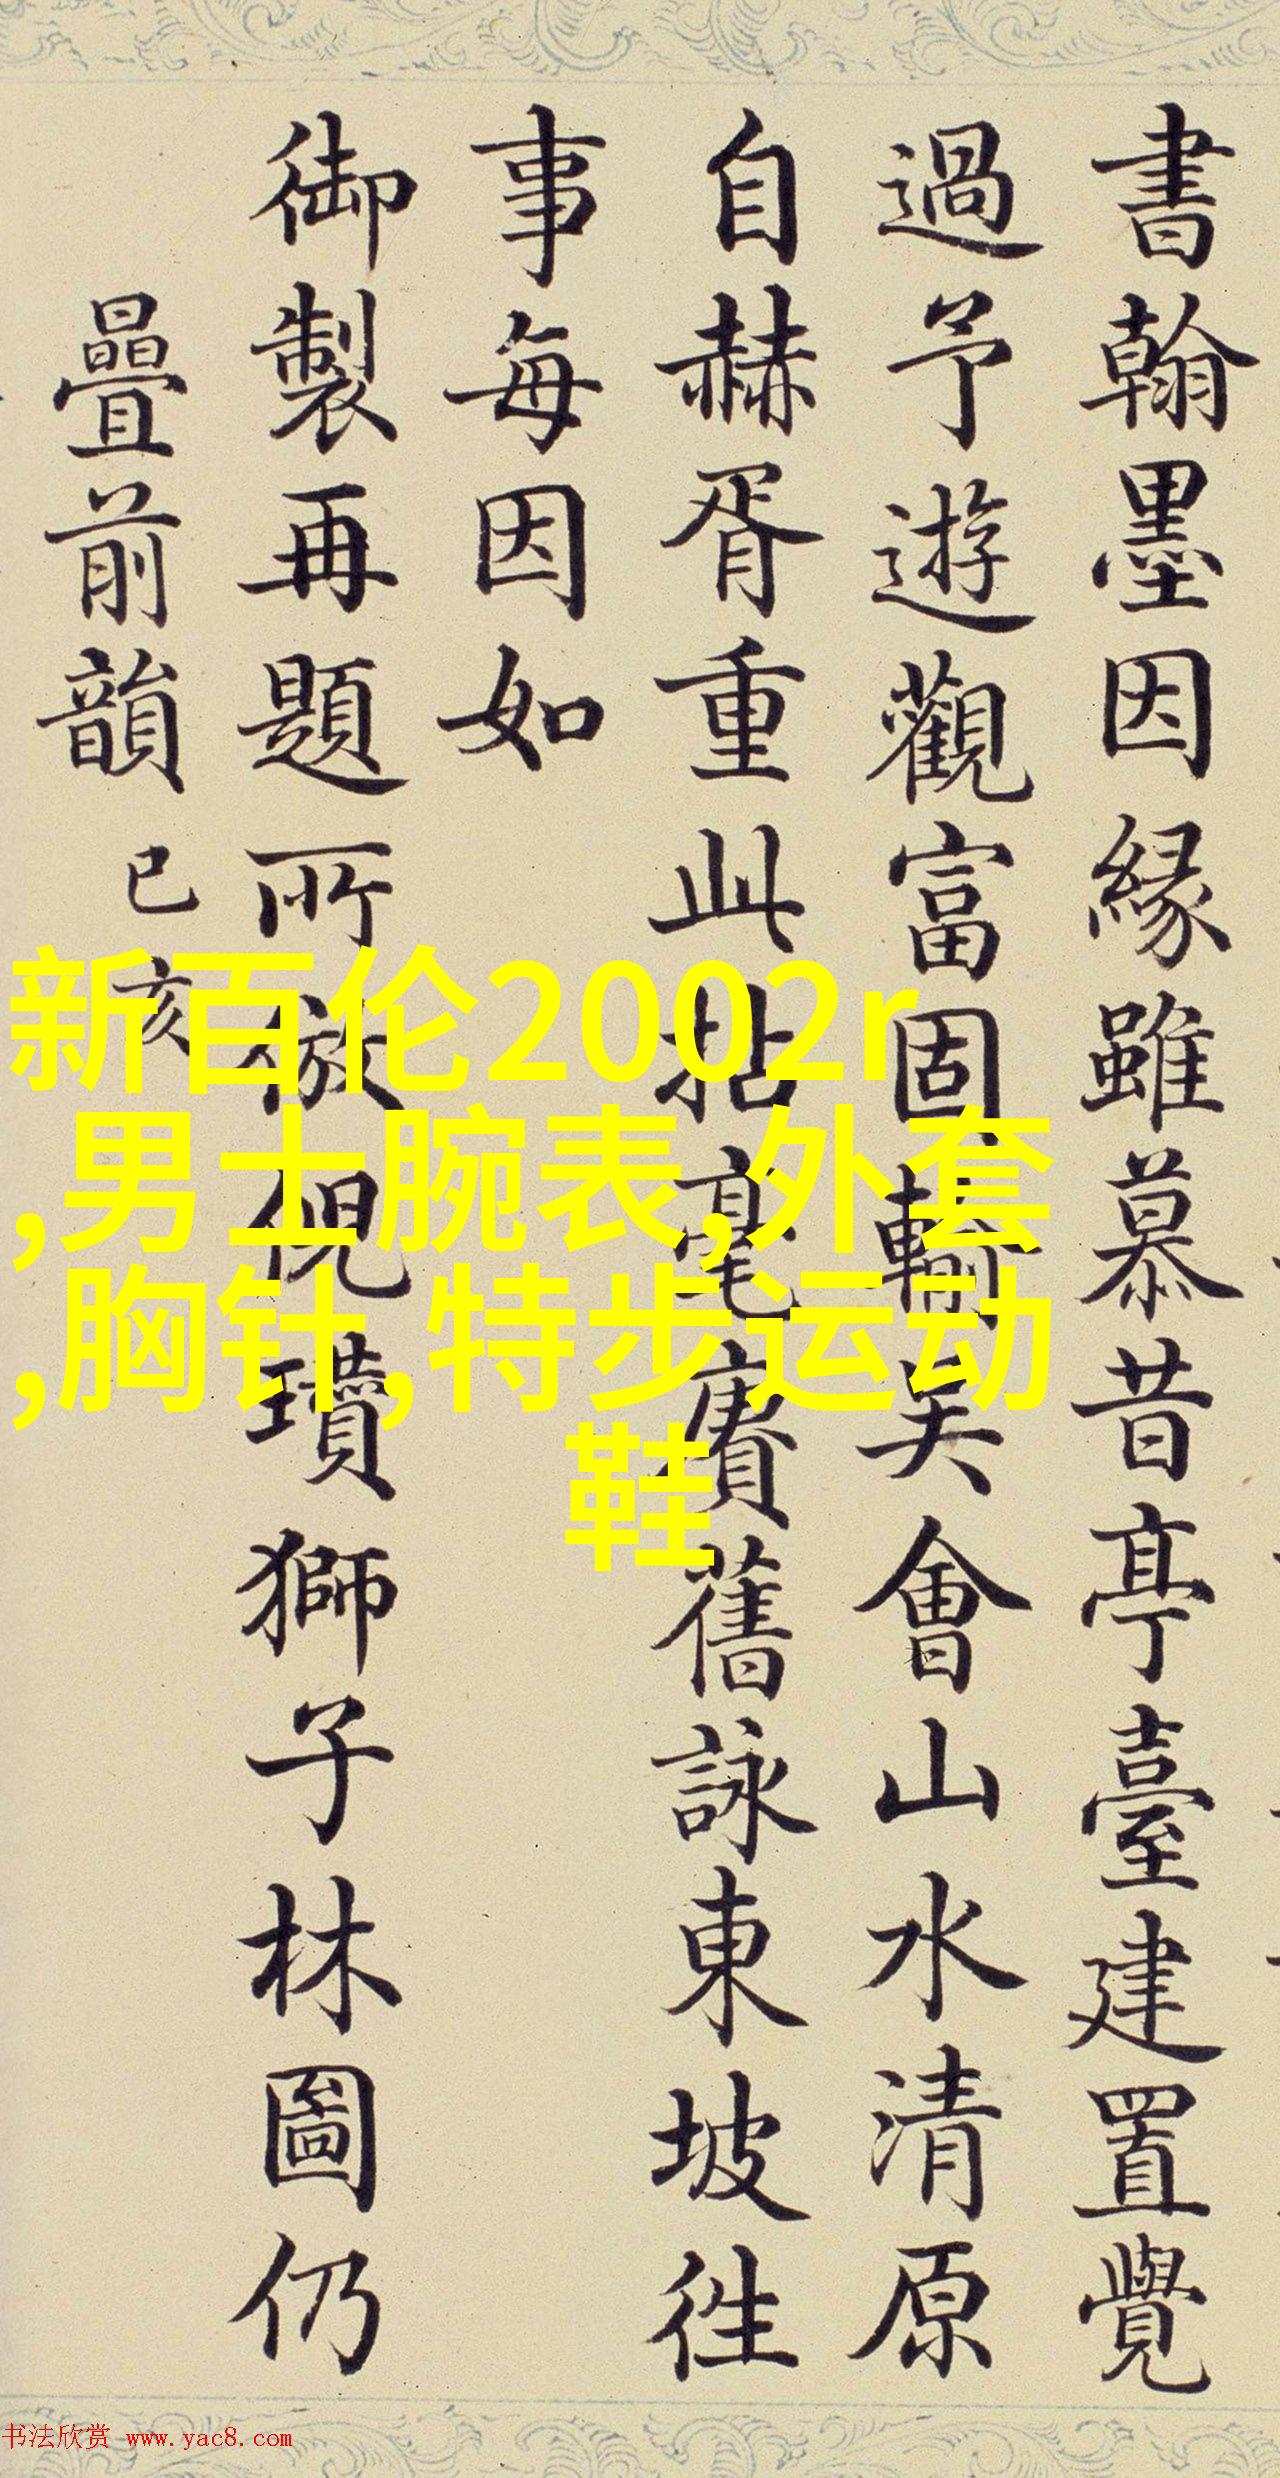 書翰墨因緣雖慕昔亭臺建置覺
過予遊觀富固輸吴會山水清原
自赫胥重此拈毫賡舊詠東坡徃
事每因如
御製再題所倣倪瓚獅子林圖仍
疊前韻 已亥
新百伦2002r
,男士腕表,外套
,胸针,特步运动
鞋
书法欣赏 www.yac8.com